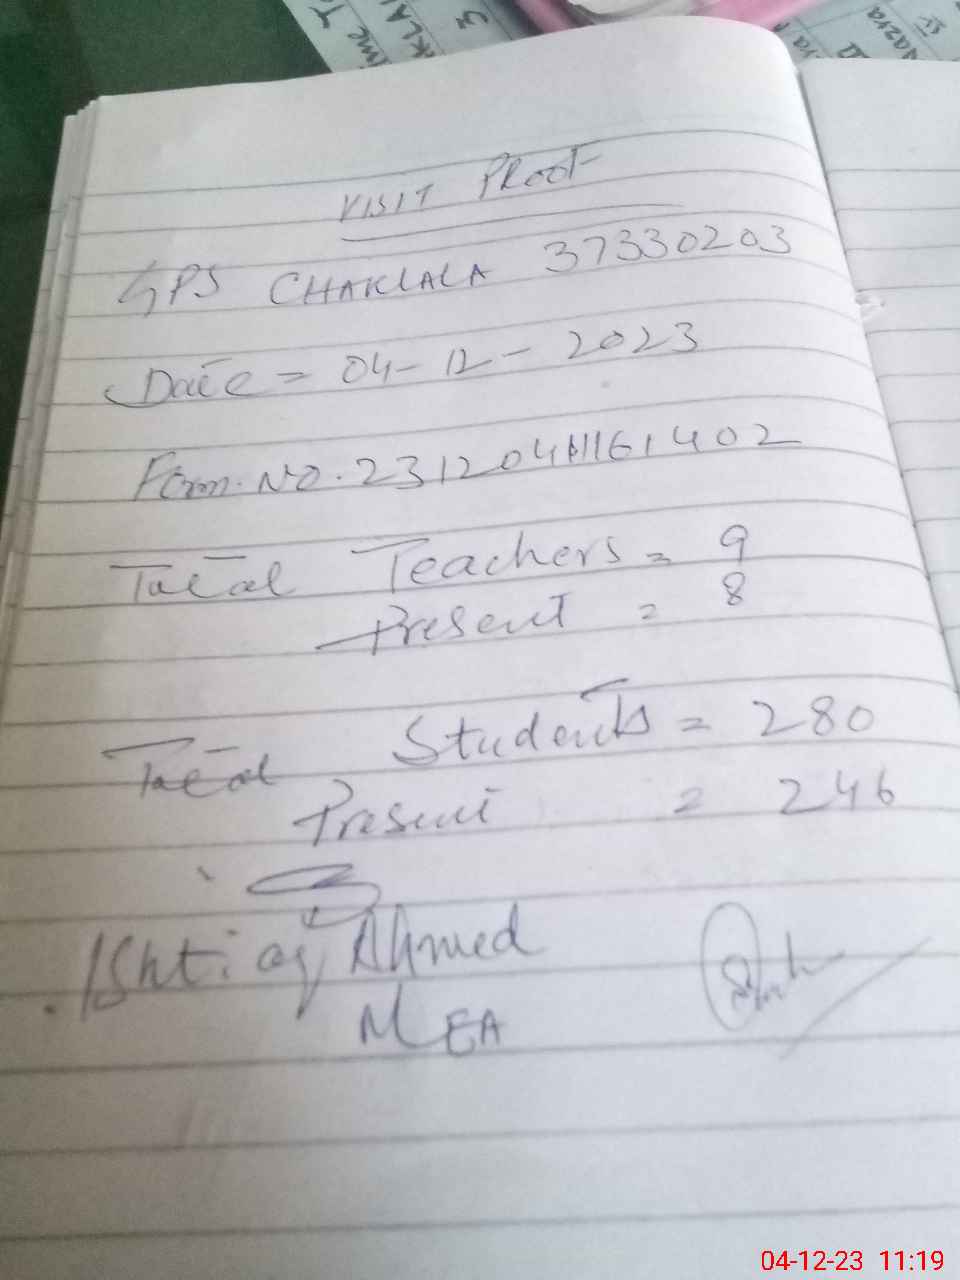 VISIT PROOF
GPS CHAKLALA 37330203
Date = 04-12-2023
Form.NO.23120411161402
Total Teachers = 9
Present = 8
Total Students = 280
Present = 246
Ishtiaq Ahmed
MEA
04-12-23 11:19